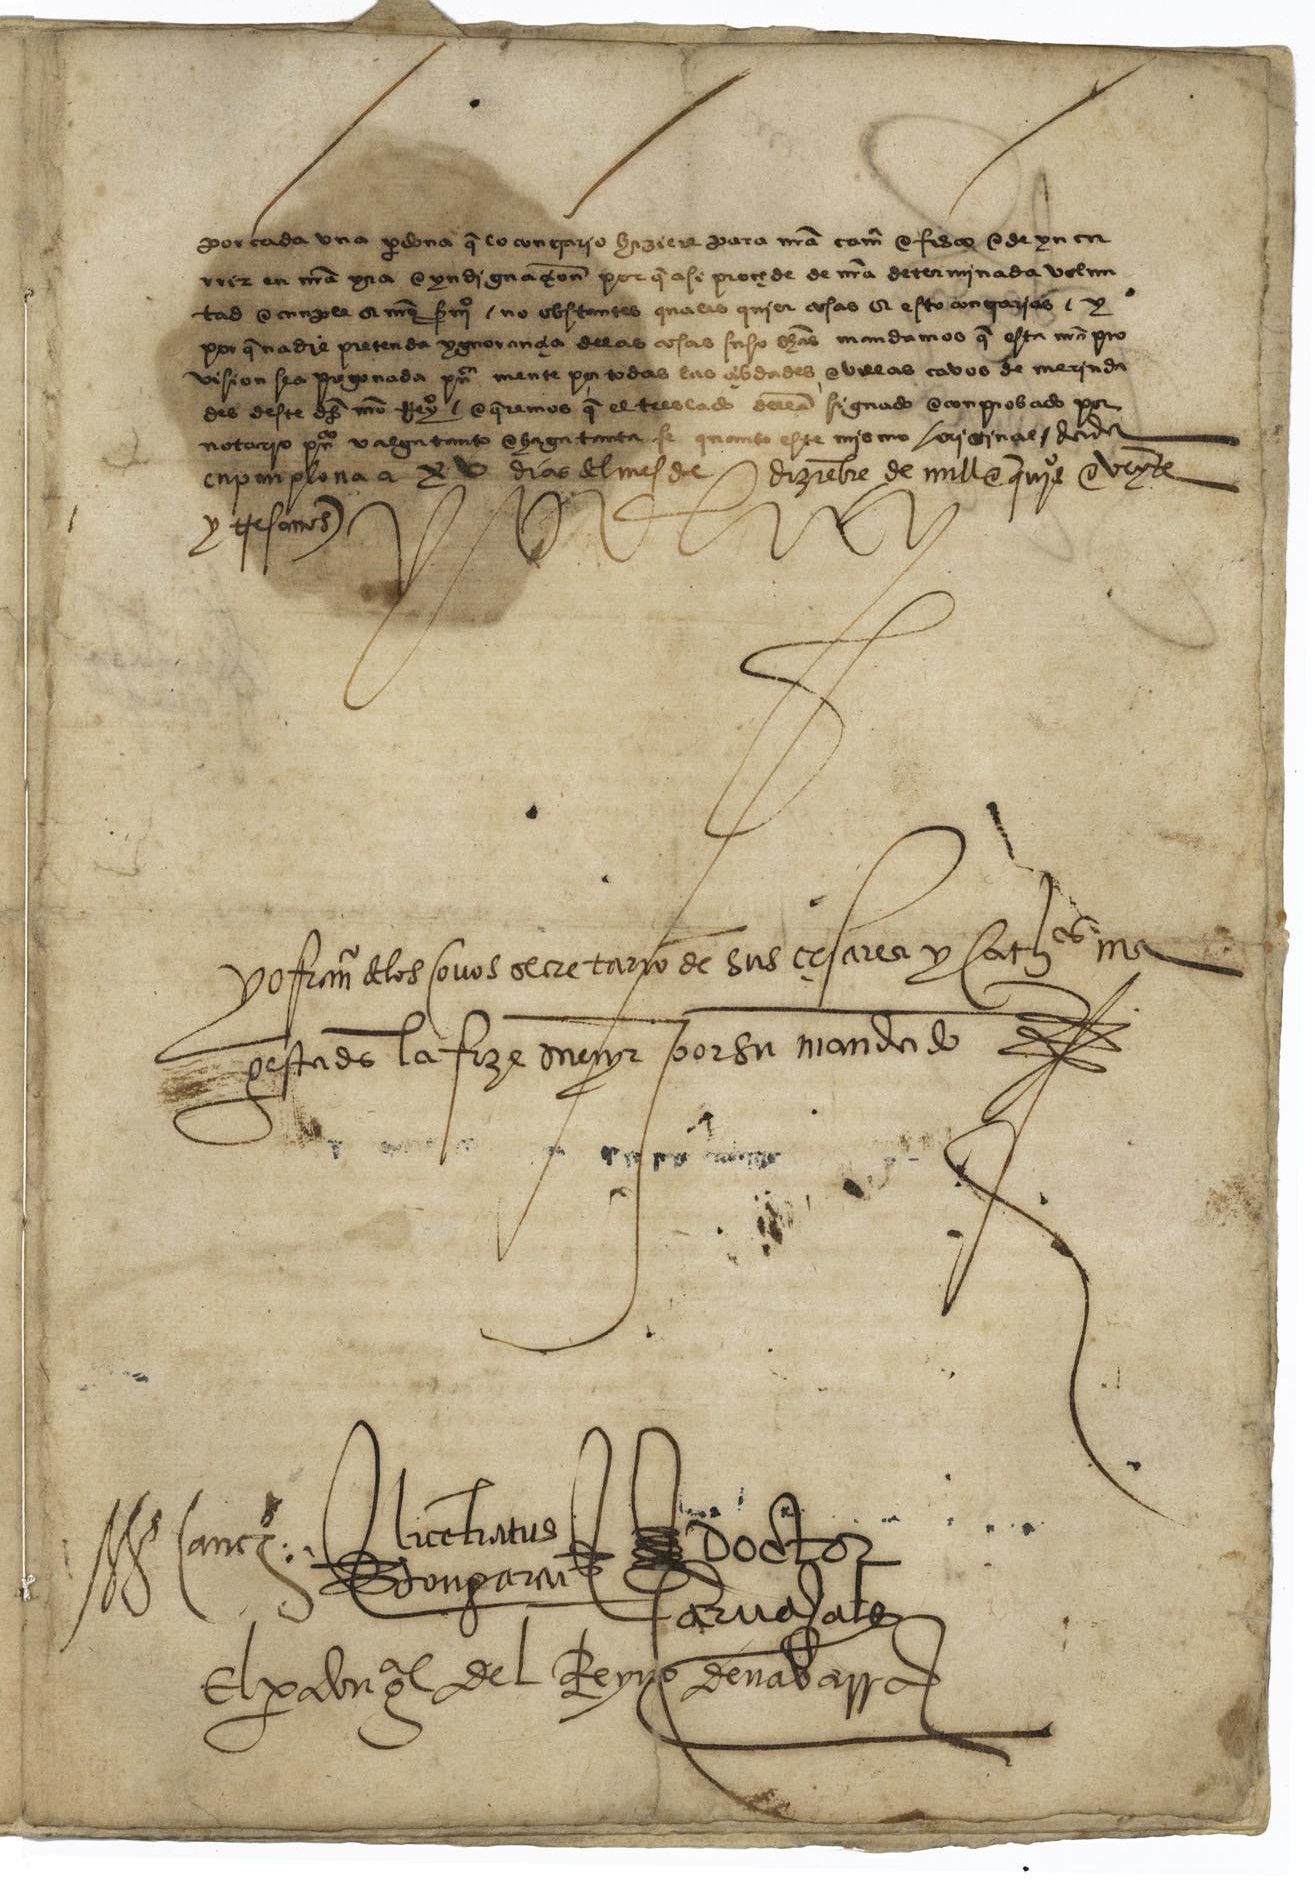 por cada una p̱sona q̄ lo contrario hiziere para nr̄a cam̄ e fisco e de yncu
rrir en nr̄a yra e yndignaçion por q̄ asi proçede de nr̄a determinada volun
tad e cunple a nr̄o s̄uiº / no obstantes quales quier cosas a esto contrarias / y
por q̄ nadie pretenda ygnorançia delas cosas suso dh̄as mandamos q̄ esta nr̄a pro
vision sea pregonada pu^ca mente por todas las çibdades e villas cavos de merinda
des deste dh̄o nr̄o Reyº / e q̄remos q̄ el treslado della signado e conprobado por
notario pu^co valga tanto e haga tanta fe quanto este mismo original / dada
en pamplona a XV dias del mes de dizienbre de mill e qui^os e veynte
y tres anos
yo el rey
yo fran^co delos covos secretario de sus çesarea y cath^cas ma
gestades la fize screuir por su mandado
Sanc^z
licenciatus
Doctor
Carvajales
El p̱don g^al del Reyno de nabarra